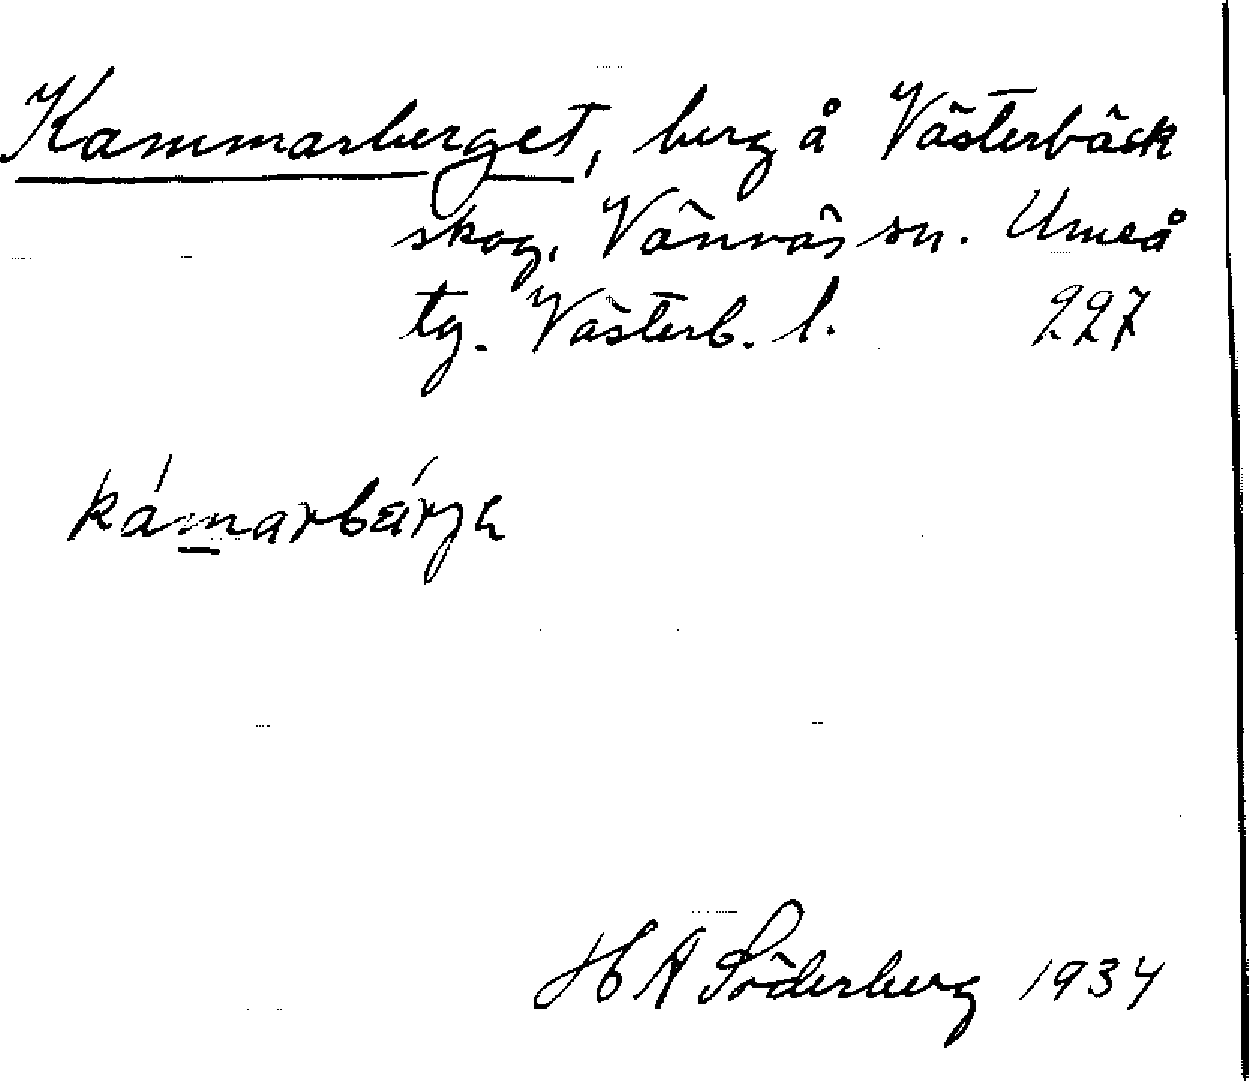 Kammarberget, berg å Västerbäck
skog, Vännäs sn. Umeå
tg. Västerb. l. 227
kámarbárjɛ
H A Söderberg 1934